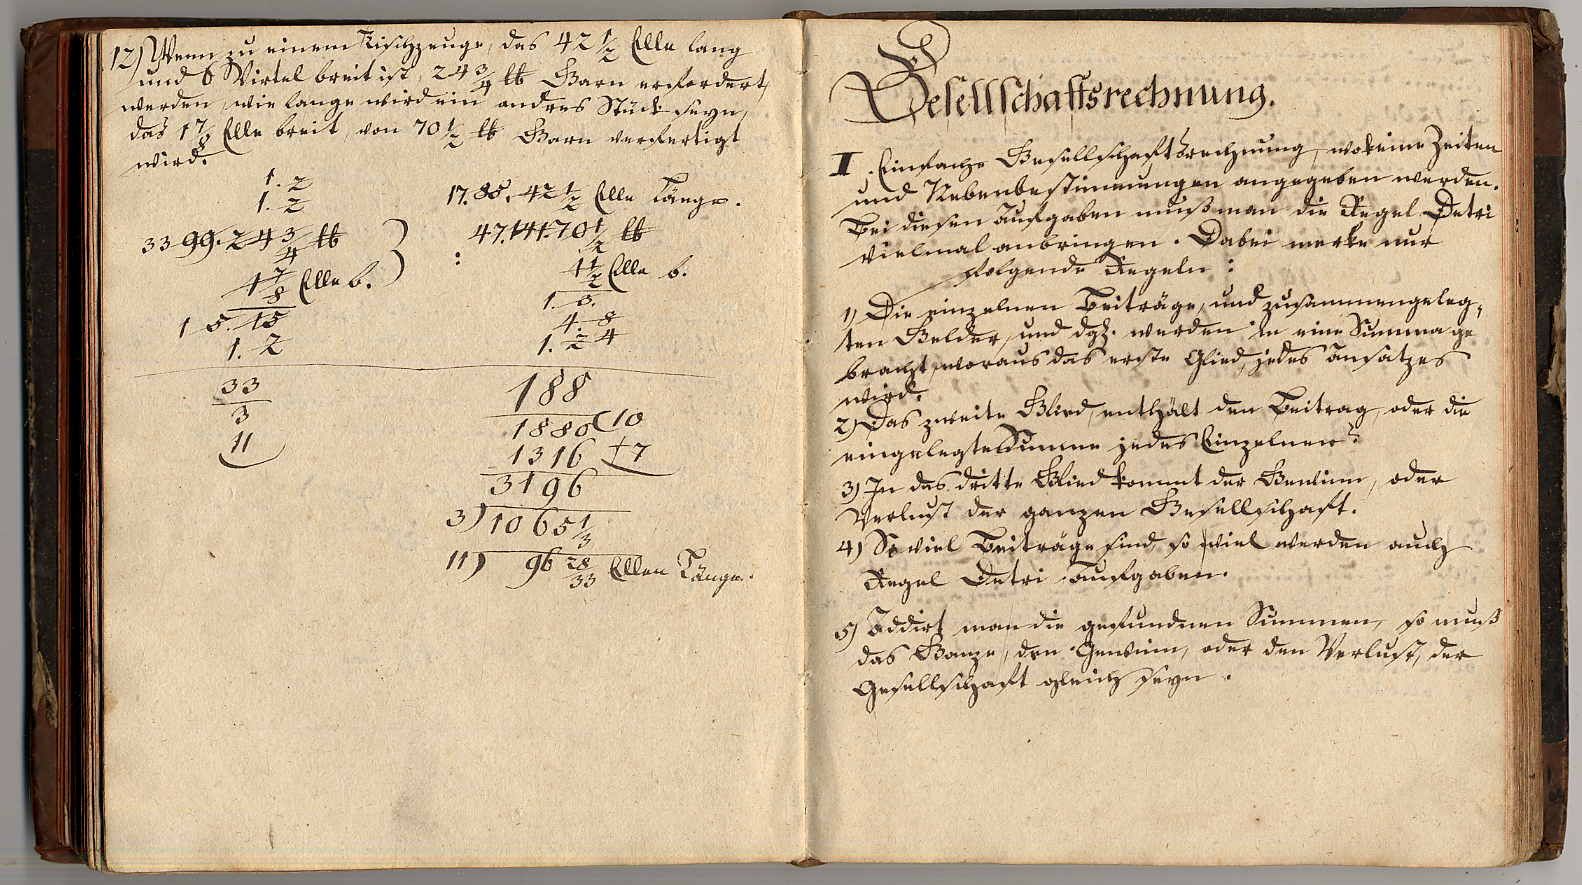 12) Wenn zu einem Tischzeuge, das 42 1/2 Elle lang
und 6 Virtel breit ist, 24 3/4 ℔ Garn erfordert
werden, wie lange wird ein andres Stück seyn,
das 1 7/8 Elle breit, von 70 1/2 ℔ Garn verfertigt
wird.
1. 2
1. 2
17. 85. 42 1/2 Elle Länge.
33 99. 24 3/4 ℔
47. 141. 70 1/2 ℔
1 7/8 Elle b.
:
1 1/2 Elle b.
1. 3.
1 5. 15
4. 8
1. 2
1. 2 4
33
3
11
188
1880 (10
1316 + 7
3196
3) 1065 1/3
11) 96 28/33 Ellen Länge.
Gesellschaftsrechnung.
I. Einfache Gesellschaftsrechnung, wo keine Zeiten
und Nebenbestimmungen angegeben werden.
Bei diesen Aufgaben muß man die Regel Detri
vielmal anbringen. Dabei merke nur
folgende Regeln:
1) Die einzelnen Beiträge, und zusammengeleg-
ten Gelder, und dgl. werden in eine Summa ge
bracht, woraus das erste Glied, jedes Ansatzes
wird.
2) Das zweite Glied, enthält den Beitrag, oder die
eingelegte Summe jedes Einzelnen.
3) In das dritte Glied kommt der Gewinn, oder
Verlust der ganzen Gesellschaft.
4) So viel Beiträge sind so viel werden auch
Regel Detri Aufgaben.
5) Addirt man die gefundnen Summen, so muß
das Ganze, den Gewinn, oder den Verlust, der
Gesellschaft gleich seyn.